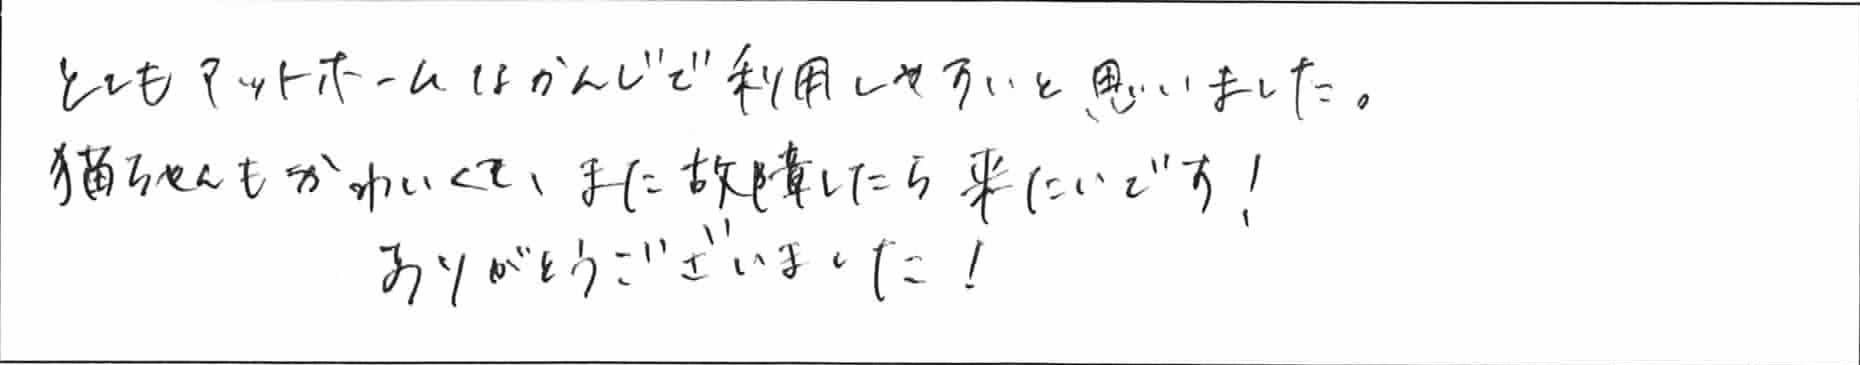 とてもアットホームなかんじで利用しやすいと思いました。
猫ちゃんもかわいくて、また故障したら来たいです!
ありがとうございました!